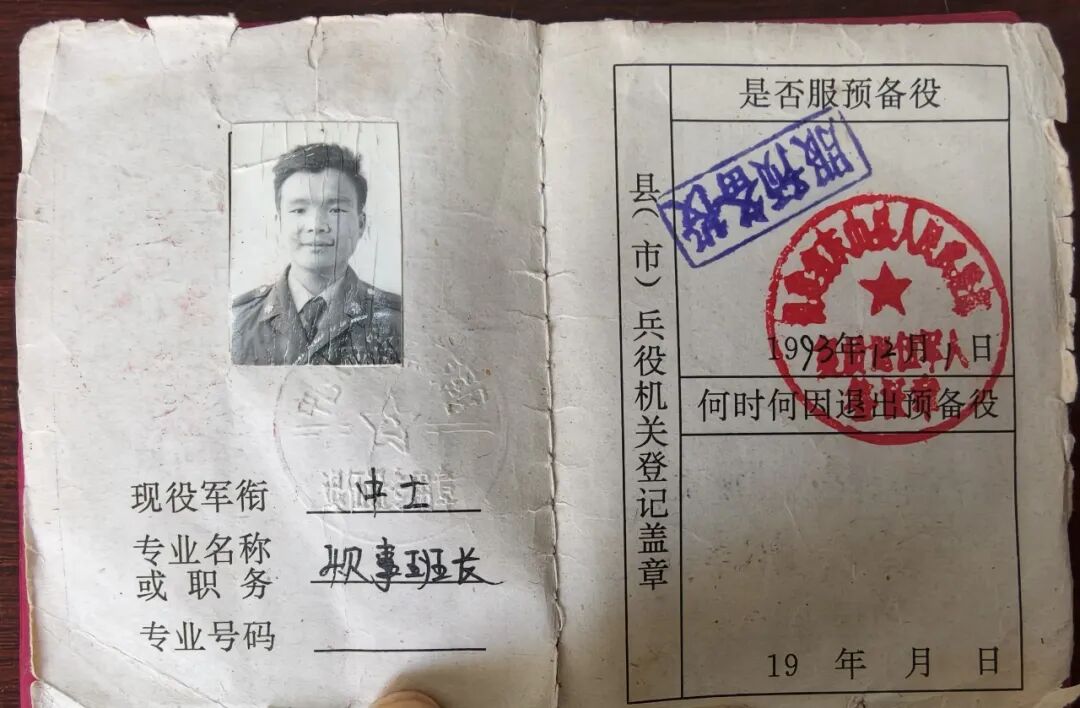 现役军衔 中士
专业名称
或职务 炊事班长
专业号码
县（市）兵役机关登记盖章
是否服预备役
服预备役
1993年12月1日
何时何因退出预备役
19 年 月 日